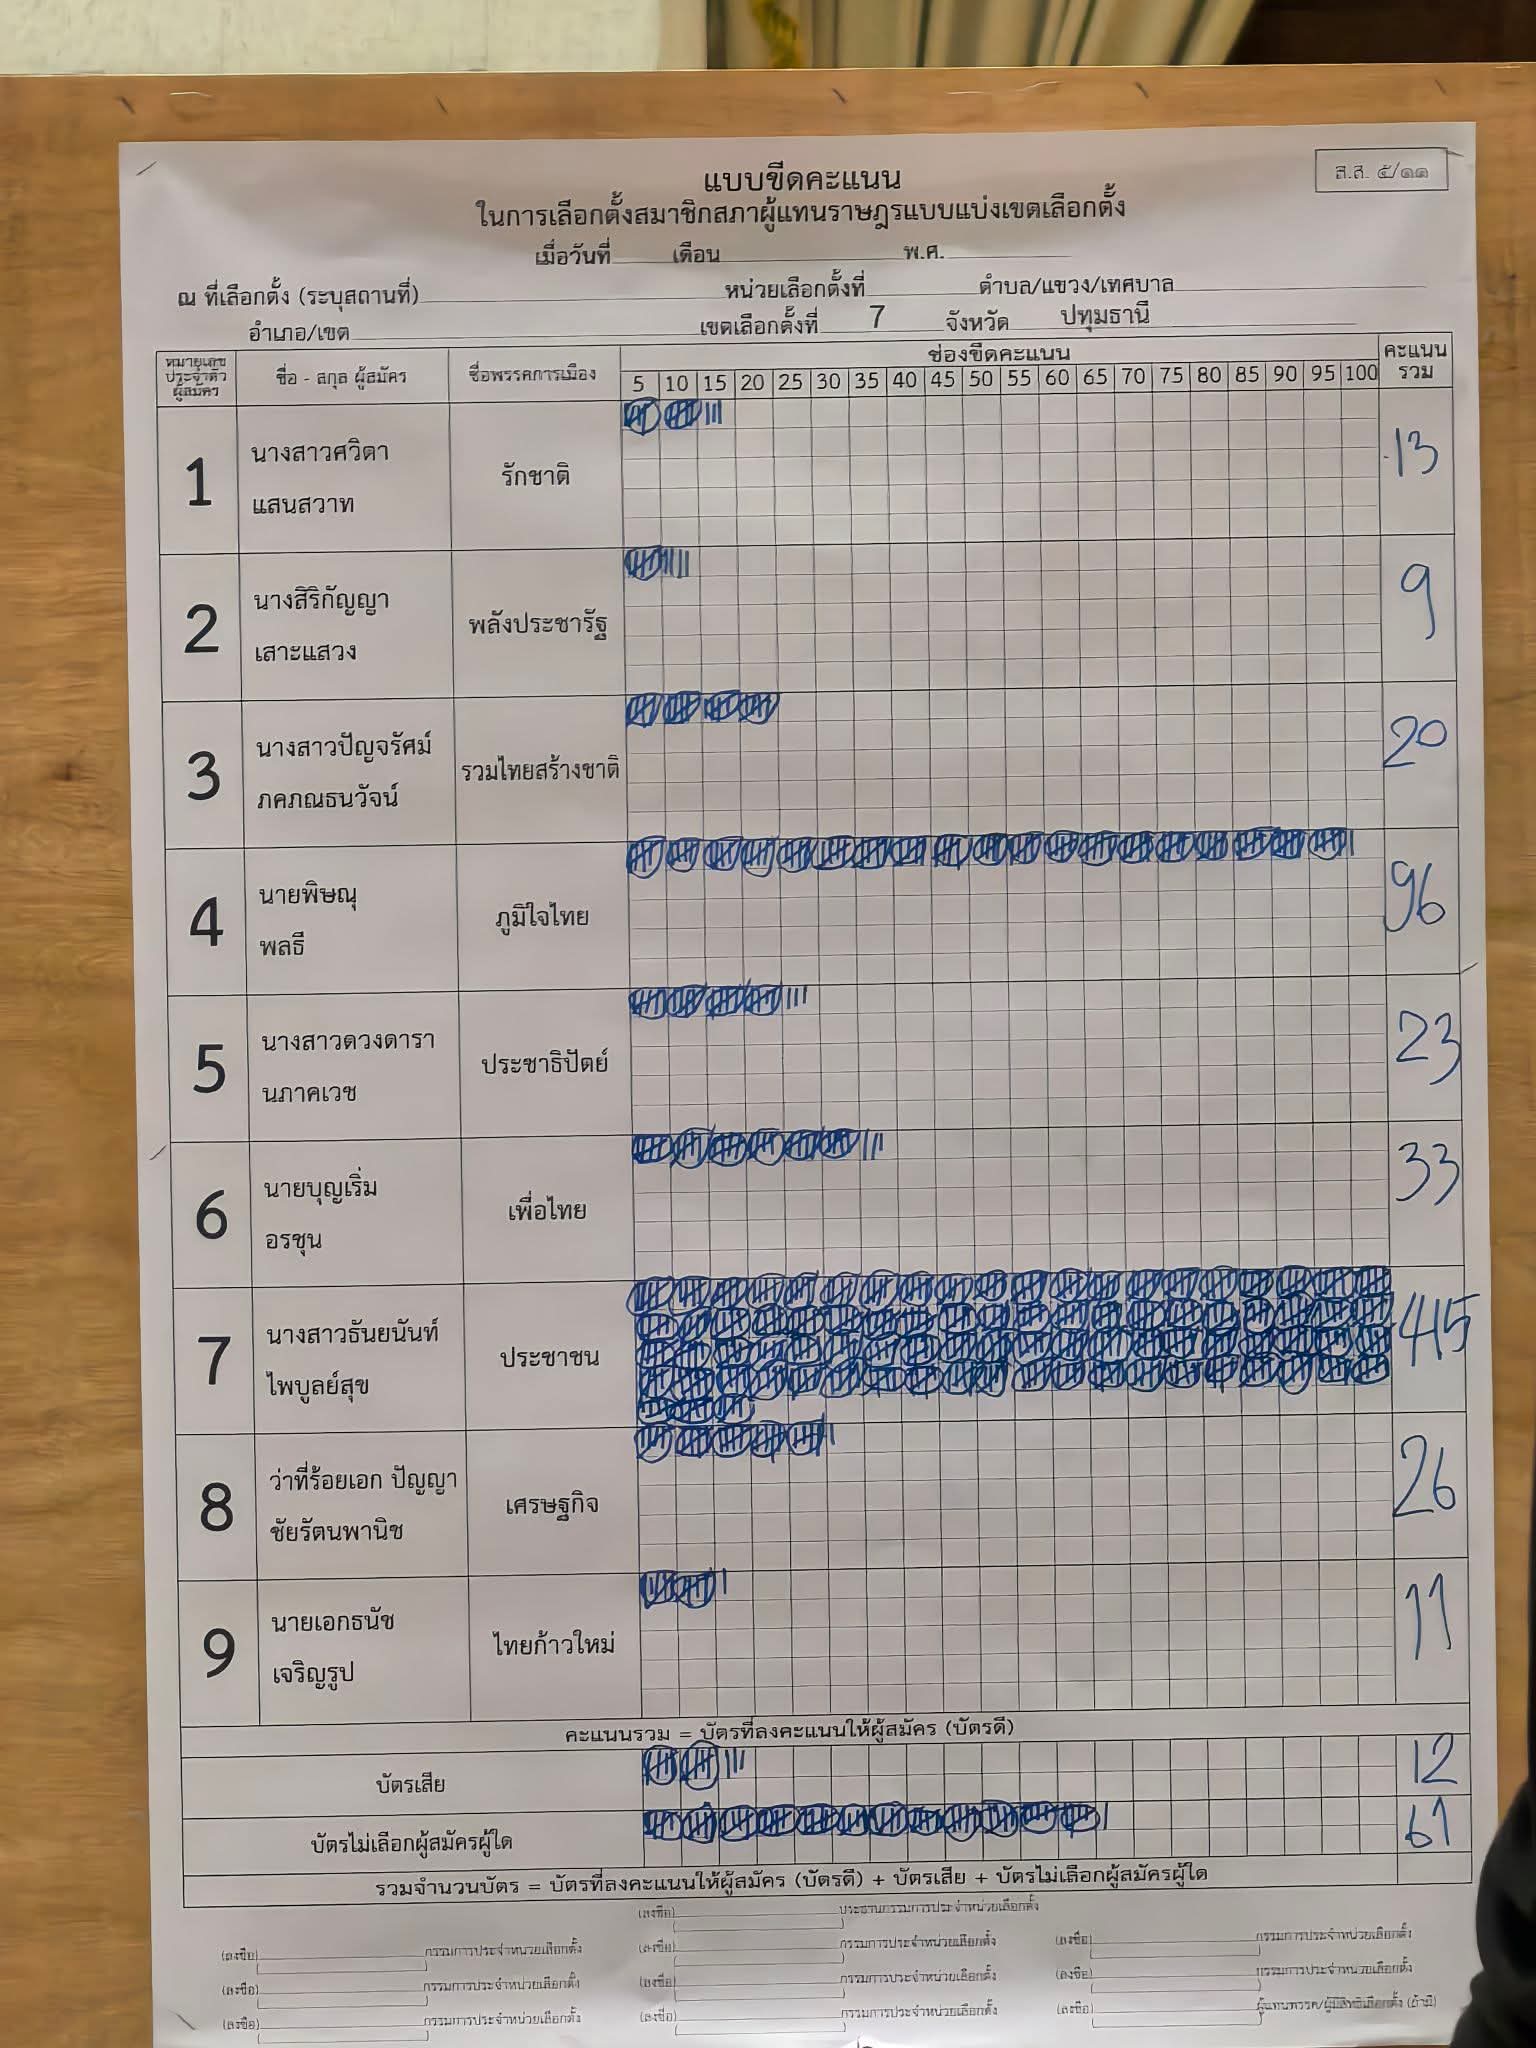 ส.ส. ๕/๑๑
แบบขีดคะแนน
ในการเลือกตั้งสมาชิกสภาผู้แทนราษฎรแบบแบ่งเขตเลือกตั้ง
เมื่อวันที่ เดือน พ.ศ.
ณ ที่เลือกตั้ง (ระบุสถานที่) หน่วยเลือกตั้งที่ ตำบล/แขวง/เทศบาล
อำเภอ/เขต เขตเลือกตั้งที่ 7 จังหวัด ปทุมธานี
หมายเลขประจำตัวผู้สมัคร ชื่อ - สกุล ผู้สมัคร ชื่อพรรคการเมือง ช่องขีดคะแนน คะแนนรวม
5 10 15 20 25 30 35 40 45 50 55 60 65 70 75 80 85 90 95 100
1 นางสาวศวิตา แสนสวาท รักชาติ 13
2 นางสิริกัญญา เสาะแสวง พลังประชารัฐ 9
3 นางสาวปัญจรัศม์ ภคภณธนวัจน์ รวมไทยสร้างชาติ 20
4 นายพิษณุ พลธี ภูมิใจไทย 96
5 นางสาวดวงดารา นภาคเวช ประชาธิปัตย์ 23
6 นายบุญเริ่ม อรชุน เพื่อไทย 33
7 นางสาวธันยนันท์ ไพบูลย์สุข ประชาชน 415
8 ว่าที่ร้อยเอก ปัญญา ชัยรัตนพานิช เศรษฐกิจ 26
9 นายเอกธนัช เจริญรูป ไทยก้าวใหม่ 11
คะแนนรวม = บัตรที่ลงคะแนนให้ผู้สมัคร (บัตรดี)
บัตรเสีย 12
บัตรไม่เลือกผู้สมัครผู้ใด 61
รวมจำนวนบัตร = บัตรที่ลงคะแนนให้ผู้สมัคร (บัตรดี) + บัตรเสีย + บัตรไม่เลือกผู้สมัครผู้ใด
(ลงชื่อ) ประธานกรรมการประจำหน่วยเลือกตั้ง
(ลงชื่อ) กรรมการประจำหน่วยเลือกตั้ง (ลงชื่อ) กรรมการประจำหน่วยเลือกตั้ง (ลงชื่อ) กรรมการประจำหน่วยเลือกตั้ง
(ลงชื่อ) กรรมการประจำหน่วยเลือกตั้ง (ลงชื่อ) กรรมการประจำหน่วยเลือกตั้ง (ลงชื่อ) กรรมการประจำหน่วยเลือกตั้ง
(ลงชื่อ) กรรมการประจำหน่วยเลือกตั้ง (ลงชื่อ) กรรมการประจำหน่วยเลือกตั้ง (ลงชื่อ) ผู้แทนพรรค/ผู้มีสิทธิเลือกตั้ง (ถ้ามี)